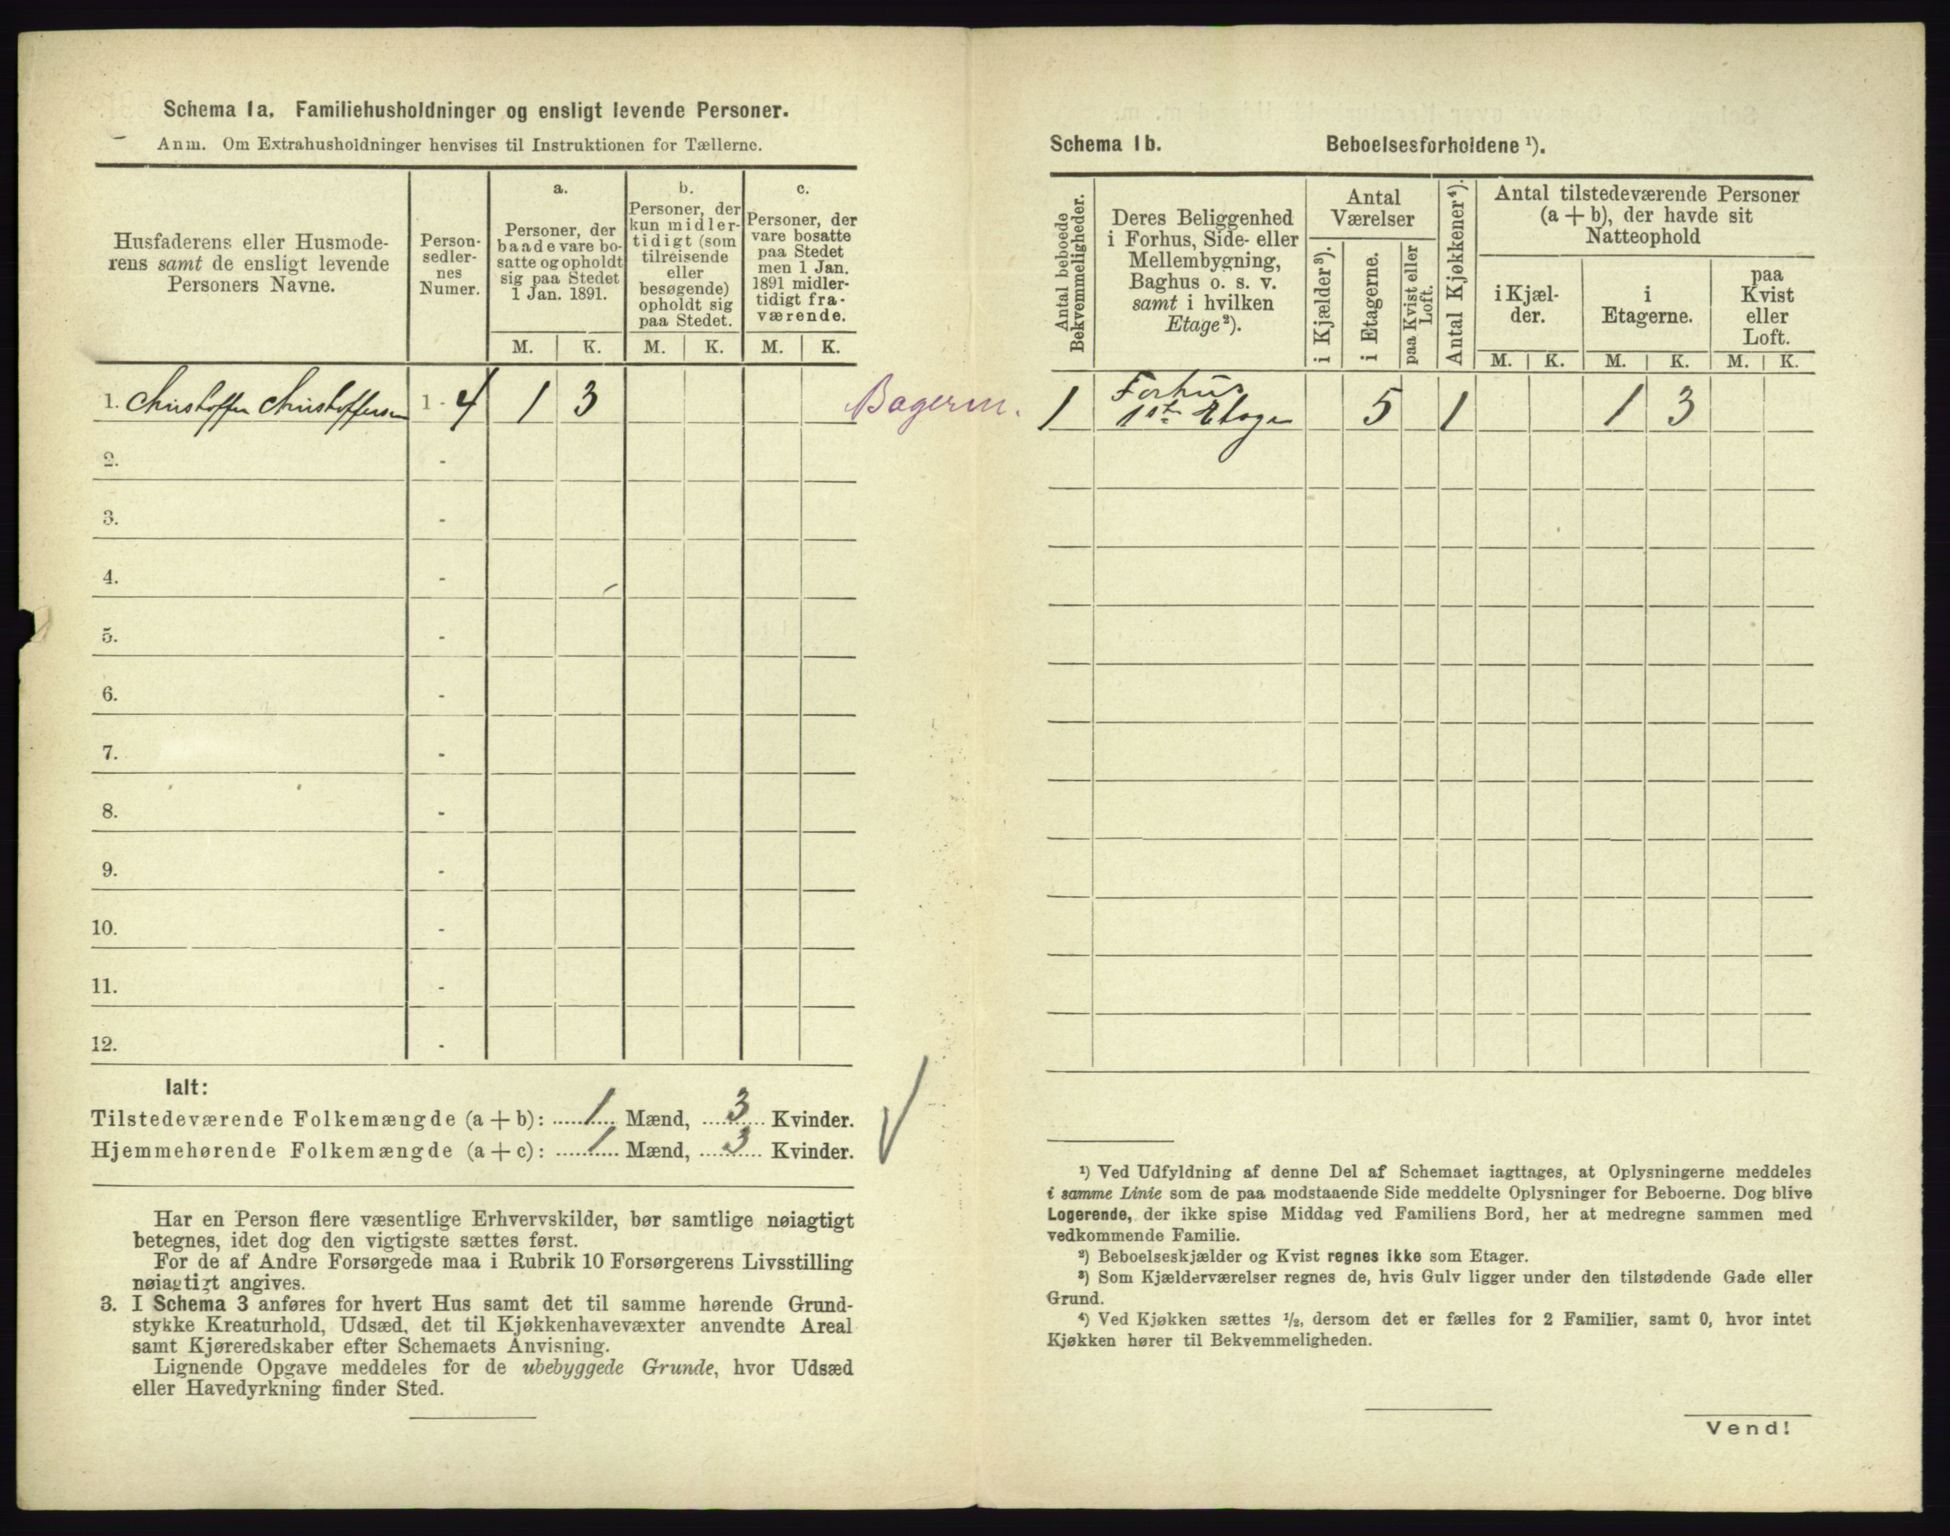 Schema 1a. Familiehusholdninger og ensligt levende Personer.
Anm. Om Extrahusholdninger henvises til Instruktionen for Tællerne.
Husfaderens eller Husmode-
rens samt de ensligt levende
Personers Navne.
Person-
sedler-
nes
Numer.
a.
Personer, der
baade vare bo-
satte og opholdt
sig paa Stedet
1 Jan. 1891.
b.
Personer, der
kun midler-
tidigt (som
tilreisende
eller
besøgende)
opholdt sig
paa Stedet.
c.
Personer, der
vare bosatte
paa Stedet
men 1 Jan.
1891 midler-
tidigt fra-
værende.
M. K. M. K. M. K.
1. Christoffer Christoffersen 1 - 4 1 3 Bagerm.
2. -
3. -
4. -
5. -
6. -
7. -
8. -
9. -
10. -
11. -
12. -
Ialt:
Tilstedeværende Folkemængde (a + b): 1 Mænd, 3 Kvinder.
Hjemmehørende Folkemængde (a + c): 1 Mænd, 3 Kvinder.
Har en Person flere væsentlige Erhvervskilder, bør samtlige nøiagtigt
betegnes, idet dog den vigtigste sættes først.
For de af Andre Forsørgede maa i Rubrik 10 Forsørgerens Livsstilling
nøiagtigt angives.
3. I Schema 3 anføres for hvert Hus samt det til samme hørende Grund-
stykke Kreaturhold, Udsæd, det til Kjøkkenhavevæxter anvendte Areal
samt Kjøreredskaber efter Schemaets Anvisning.
Lignende Opgave meddeles for de ubebyggede Grunde, hvor Udsæd
eller Havedyrkning finder Sted.
Schema 1b. Beboelsesforholdene ¹).
Antal beboede
Bekvemmeligheder.
Deres Beliggenhed
i Forhus, Side- eller
Mellembygning,
Baghus o. s. v.
samt i hvilken
Etage²).
Antal
Værelser
i Kjælder³).
i Etagerne.
paa Kvist eller
Loft.
Antal Kjøkkener⁴).
Antal tilstedeværende Personer
(a + b), der havde sit
Natteophold
i Kjæl-
der.
i
Etagerne.
paa
Kvist
eller
Loft.
M. K. M. K. M. K.
1 Forhus
1ste Etage 5 1 1 3
¹) Ved Udfyldning af denne Del af Schemaet iagttages, at Oplysningerne meddeles
i samme Linie som de paa modstaaende Side meddelte Oplysninger for Beboerne. Dog blive
Logerende, der ikke spise Middag ved Familiens Bord, her at medregne sammen med
vedkommende Familie.
²) Beboelseskjælder og Kvist regnes ikke som Etager.
³) Som Kjælderværelser regnes de, hvis Gulv ligger under den tilstødende Gade eller
Grund.
⁴) Ved Kjøkken sættes ½, dersom det er fælles for 2 Familier, samt 0, hvor intet
Kjøkken hører til Bekvemmeligheden.
Vend!